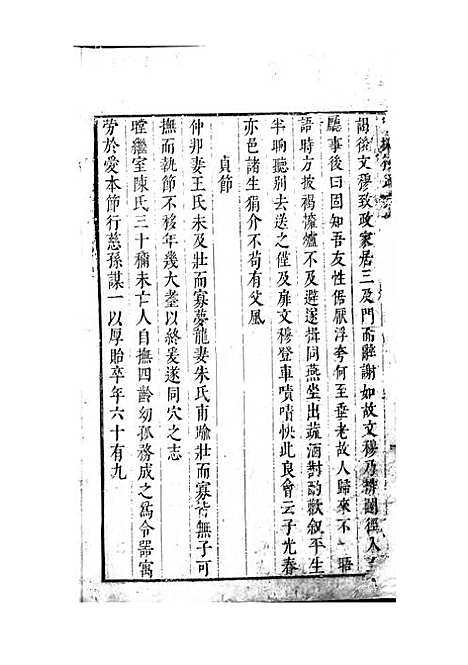 謁徐文穆致政家居三及門而辭謝如故文穆乃排闥徑入
聽事後曰固知吾友性倨厭浮夸何至垂老故人歸來不一晤
語時方披褐擁爐不及避遂揖同燕坐出蔬酒對酌歡叙平生
半晌聽别去送之僅及扉文穆登車嘖嘖快此良會云子光春
亦邑諸生狷介不苟有父風
貞節
仲那妻王氏未及壯而寡夢龍妻朱氏甫踰壯而寡皆無子可
撫而執節不移年幾大耋以終爰遂同穴之志
瑩繼室陳氏三十稱未亡人自撫四齡幼孤務成之爲令器寓
勞於愛本節行慈孫謀一以厚貽卒年六十有九